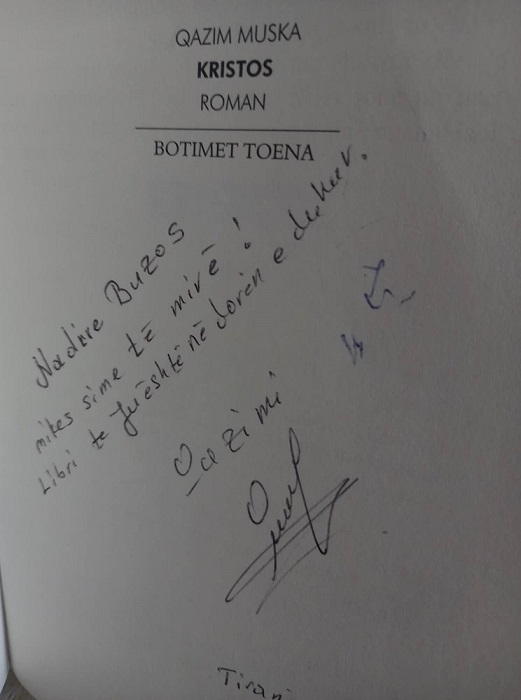 QAZIM MUSKA
KRISTOS
ROMAN
BOTIMET TOENA
Nadire Buzos
mikes sime të mirë!
Libri te ju është në dorën e duhur.
Qazimi